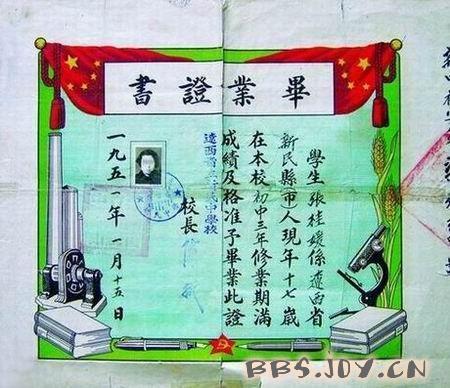 畢業證書
學生張桂媛係遼西省
新民縣市人現年十七歲
在本校初中三年修業期滿
成績及格准予畢業此證
校長
一九五一年一月十五日
BBS.JOY.CN